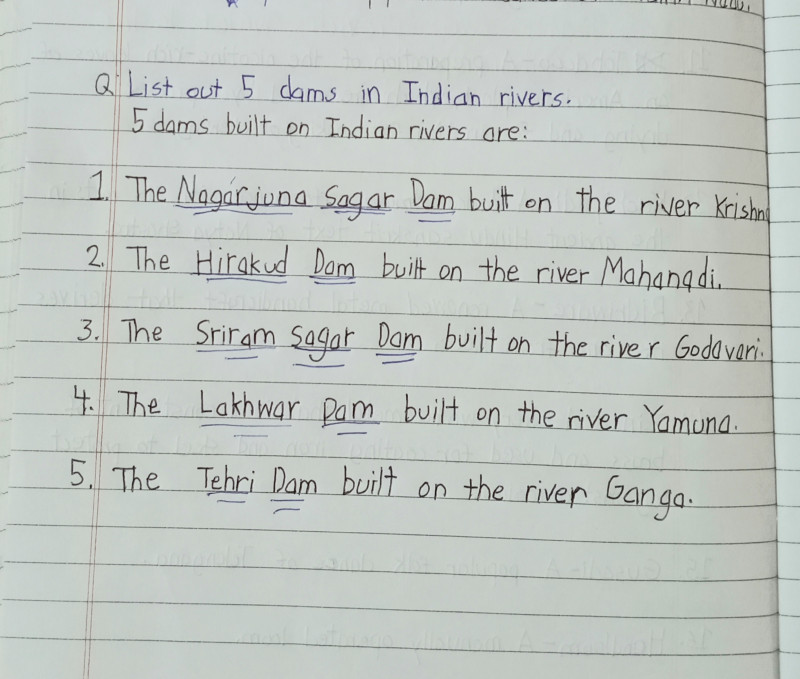 Q. List out 5 dams in Indian rivers.
5 dams built on Indian rivers are:
1. The Nagarjuna Sagar Dam built on the river Krishna
2. The Hirakud Dam built on the river Mahanadi.
3. The Sriram Sagar Dam built on the river Godavari.
4. The Lakhwar Dam built on the river Yamuna.
5. The Tehri Dam built on the river Ganga.